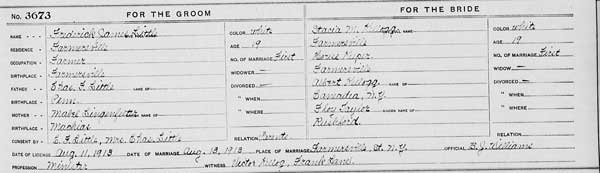 No. 3673 FOR THE GROOM FOR THE BRIDE
NAME - - - Frederick James Little COLOR white Stacia M. Kellogg NAME COLOR white
RESIDENCE - Farmersville AGE 19 Farmersville AGE 19
OCCUPATION - Farmer NO. OF MARRIAGE First NO. OF MARRIAGE First
BIRTHPLACE - Farmersville WIDOWER — Farmersville WIDOW —
FATHER - - Chas. F. Little NAME OF DIVORCED — Albert Kellogg NAME OF DIVORCED —
BIRTHPLACE - Penn. " WHEN N.Y. " WHEN
MOTHER - - Mabel MAIDEN NAME OF " WHERE Taylor MAIDEN NAME OF " WHERE
BIRTHPLACE - Machias Rushford
CONSENT BY - C. F. Little, Mrs. Chas. Little RELATION Parents RELATION
DATE OF LICENSE Aug. 11, 1913 DATE OF MARRIAGE Aug. 13, 1913 PLACE OF MARRIAGE Farmersville, N.Y. OFFICIAL B. J. Williams
PROFESSION Minister WITNESS Victor Frank